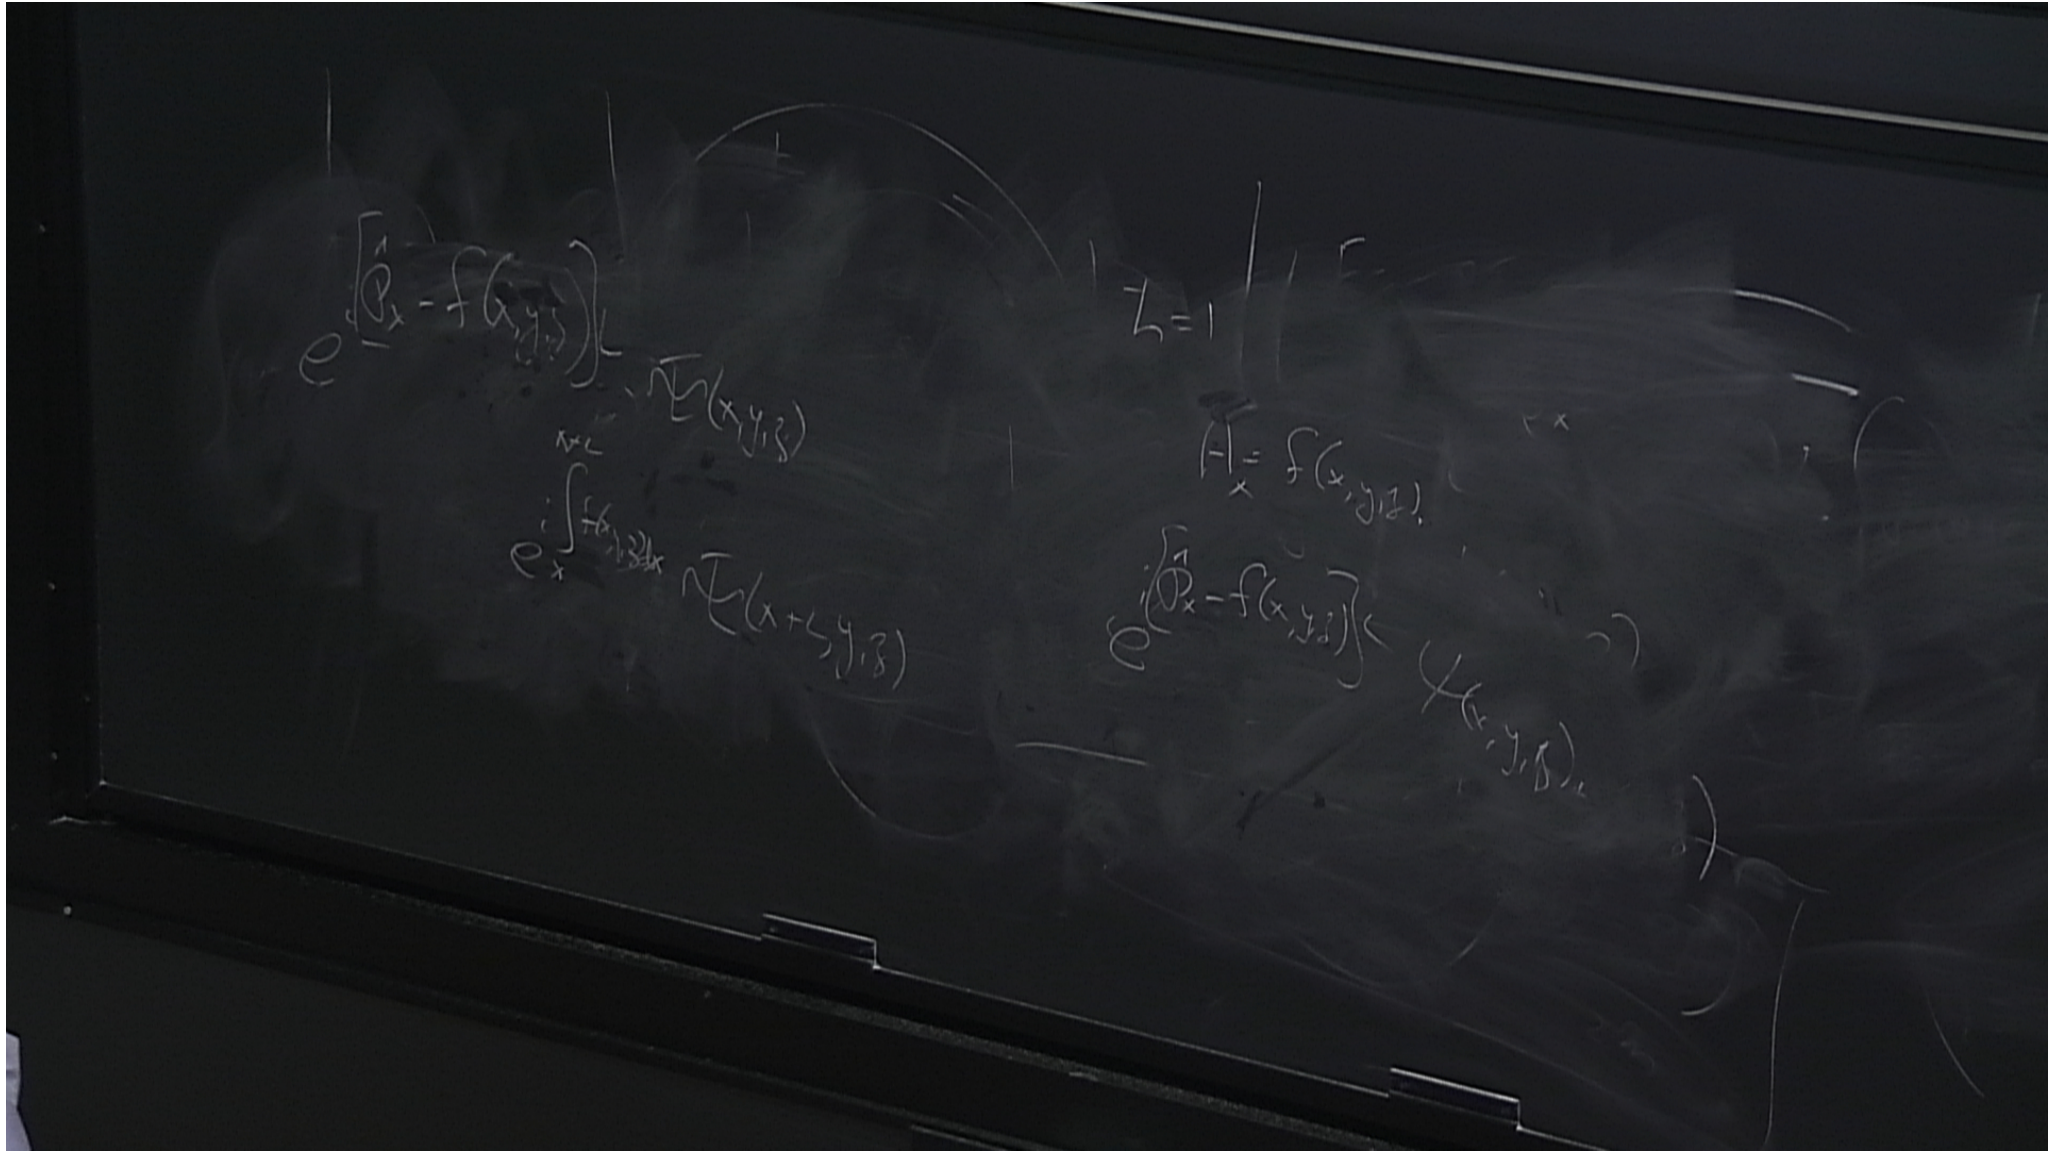 e^{i[P̂_x - f(x,y,z)]L} Ψ(x,y,z)
e^{i∫_x^{x+L} f(x,y,z)dx} Ψ(x+L,y,z)
L=1
A_x = f(x,y,z).
e^{i[P̂_x - f(x,y,z)]L} ψ(x,y,z)